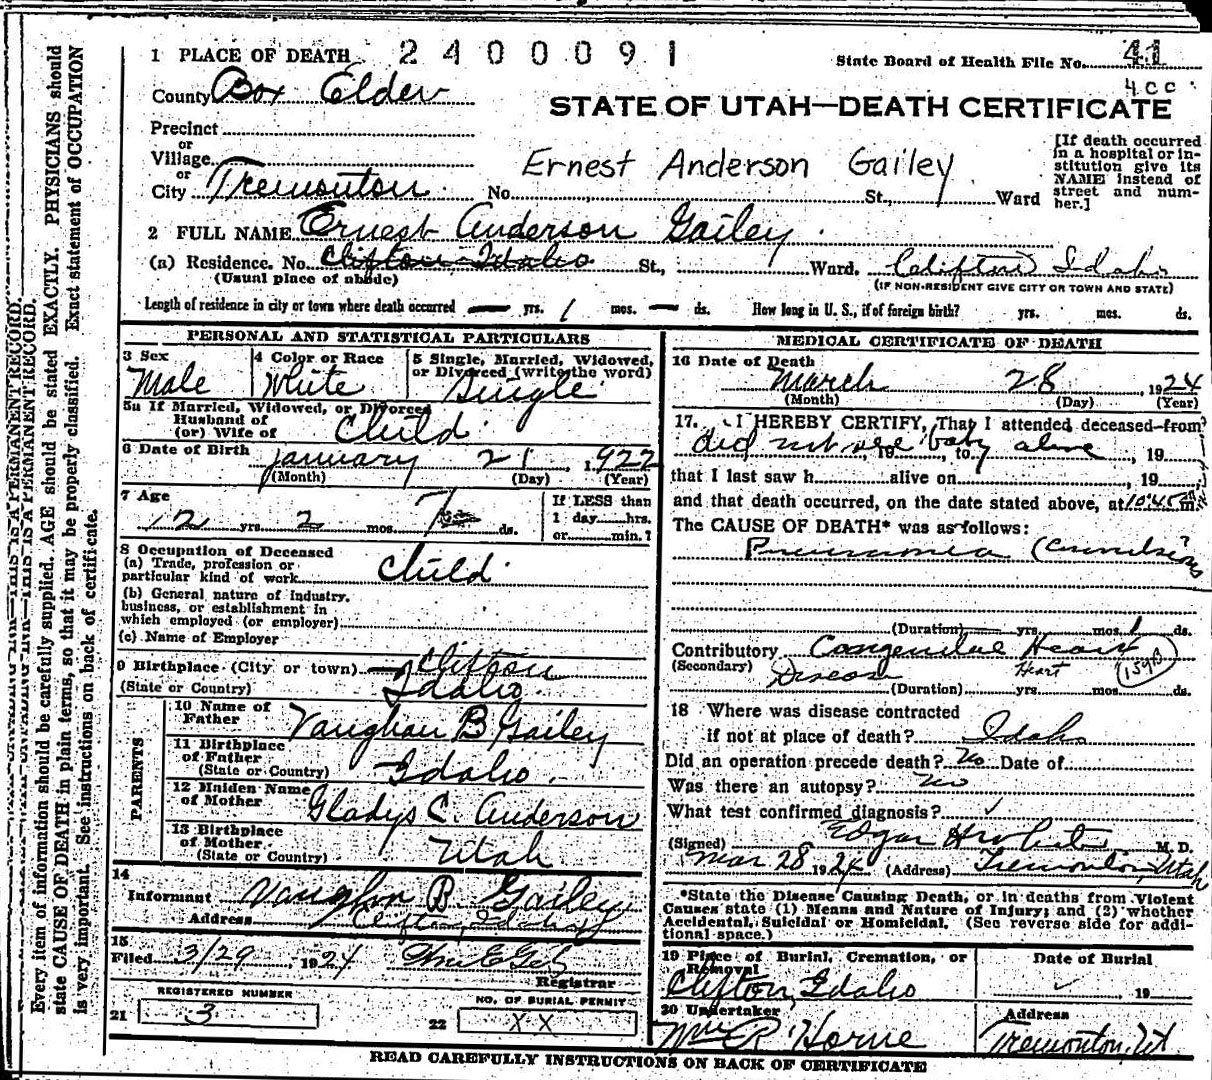 1 PLACE OF DEATH 2400091
State Board of Health File No. 41
400
County Box Elder
STATE OF UTAH—DEATH CERTIFICATE
Precinct
or
Village
or
City Tremonton No. St., Ward
Ernest Anderson Gailey
[If death occurred
in a hospital or in-
stitution give its
NAME instead of
street and num-
ber.]
2 FULL NAME Ernest Anderson Gailey
(a) Residence. No. Clifton Idaho St., Ward. Clifton Idaho
(Usual place of abode) (IF NON-RESIDENT GIVE CITY OR TOWN AND STATE)
Length of residence in city or town where death occurred — yrs. 1 mos. — ds. How long in U. S., if of foreign birth? yrs. mos. ds.
PERSONAL AND STATISTICAL PARTICULARS
3 Sex Male
4 Color or Race White
5 Single, Married, Widowed,
or Divorced (write the word)
Single
5a If Married, Widowed, or Divorced
Husband of
(or) Wife of Child
6 Date of Birth January 21 1922
(Month) (Day) (Year)
7 Age
2 yrs. 2 mos. 7 ds.
If LESS than
1 day hrs.
or min.?
8 Occupation of Deceased
(a) Trade, profession or
particular kind of work Child
(b) General nature of industry,
business, or establishment in
which employed (or employer)
(c) Name of Employer
9 Birthplace (City or town) Clifton
(State or Country) Idaho
PARENTS
10 Name of
Father Vaughan B Gailey
11 Birthplace
of Father
(State or Country) Idaho
12 Maiden Name
of Mother Gladys C. Anderson
13 Birthplace
of Mother
(State or Country) Utah
14
Informant Vaughn B. Gailey
Address Clifton, Idaho
15
Filed 3/29 1924
Registrar
REGISTERED NUMBER
21 3
NO. OF BURIAL PERMIT
22 XX
MEDICAL CERTIFICATE OF DEATH
16 Date of Death
March 28 1924
(Month) (Day) (Year)
17. I HEREBY CERTIFY, That I attended deceased from
did not see baby alive , 19 , to , 19
that I last saw h alive on , 19
and that death occurred, on the date stated above, at 10:45 m.
The CAUSE OF DEATH* was as follows:
Pneumonia (Convulsions)
(Duration) yrs. mos. 1 ds.
Contributory Congenital Heart
(Secondary) Disease Heart 159B
(Duration) yrs. mos. ds.
18 Where was disease contracted
if not at place of death? Idaho
Did an operation precede death? No Date of
Was there an autopsy? No
What test confirmed diagnosis? ✓
(Signed) Edgar M. D.
Mar 28 1924 (Address) Tremonton, Utah
*State the Disease Causing Death, or in deaths from Violent
Causes state (1) Means and Nature of Injury; and (2) whether
Accidental, Suicidal or Homicidal. (See reverse side for addi-
tional space.)
19 Place of Burial, Cremation, or
Removal
Clifton, Idaho
Date of Burial
✓ 19
20 Undertaker
Wm R Horne
Address
Tremonton, Ut
READ CAREFULLY INSTRUCTIONS ON BACK OF CERTIFICATE
THIS IS A PERMANENT RECORD.
Every item of information should be carefully supplied. AGE should be stated EXACTLY. PHYSICIANS should
state CAUSE OF DEATH in plain terms, so that it may be properly classified. Exact statement of OCCUPATION
is very important. See instructions on back of certificate.